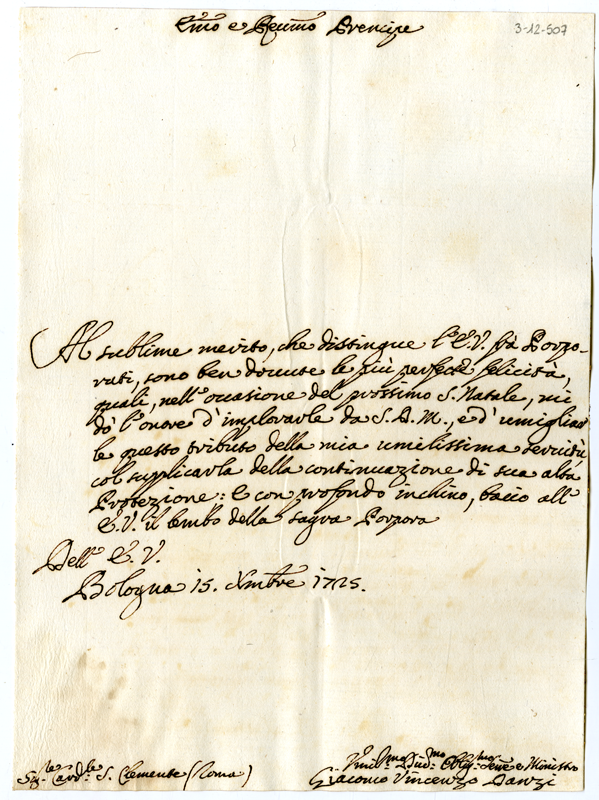 Emo e Reumo Prencipe
3-12-507
Al sublime merito, che distingue l'E.V. frà Porpo-
rati, sono ben dovute le più perfette felicità,
quali, nell'occasione del prossimo S. Natale, mi
dò l'onore d'implorarle da S.A.M., e d'umigliar
le questo tributo della mia umilissima servitù,
col supplicarla della continuazione di sua alta
Protezione: E con profondo inchino, bacio all'
E.V. il lembo della sagra Porpora
Dell'E.V.
Bologna 15. Xmbre 1725.
Sig.le Card.le S. Clemente (Roma)
Vmo. Dmo Obligmo Serre e Ministro
Giacomo Vincenzo Danzi